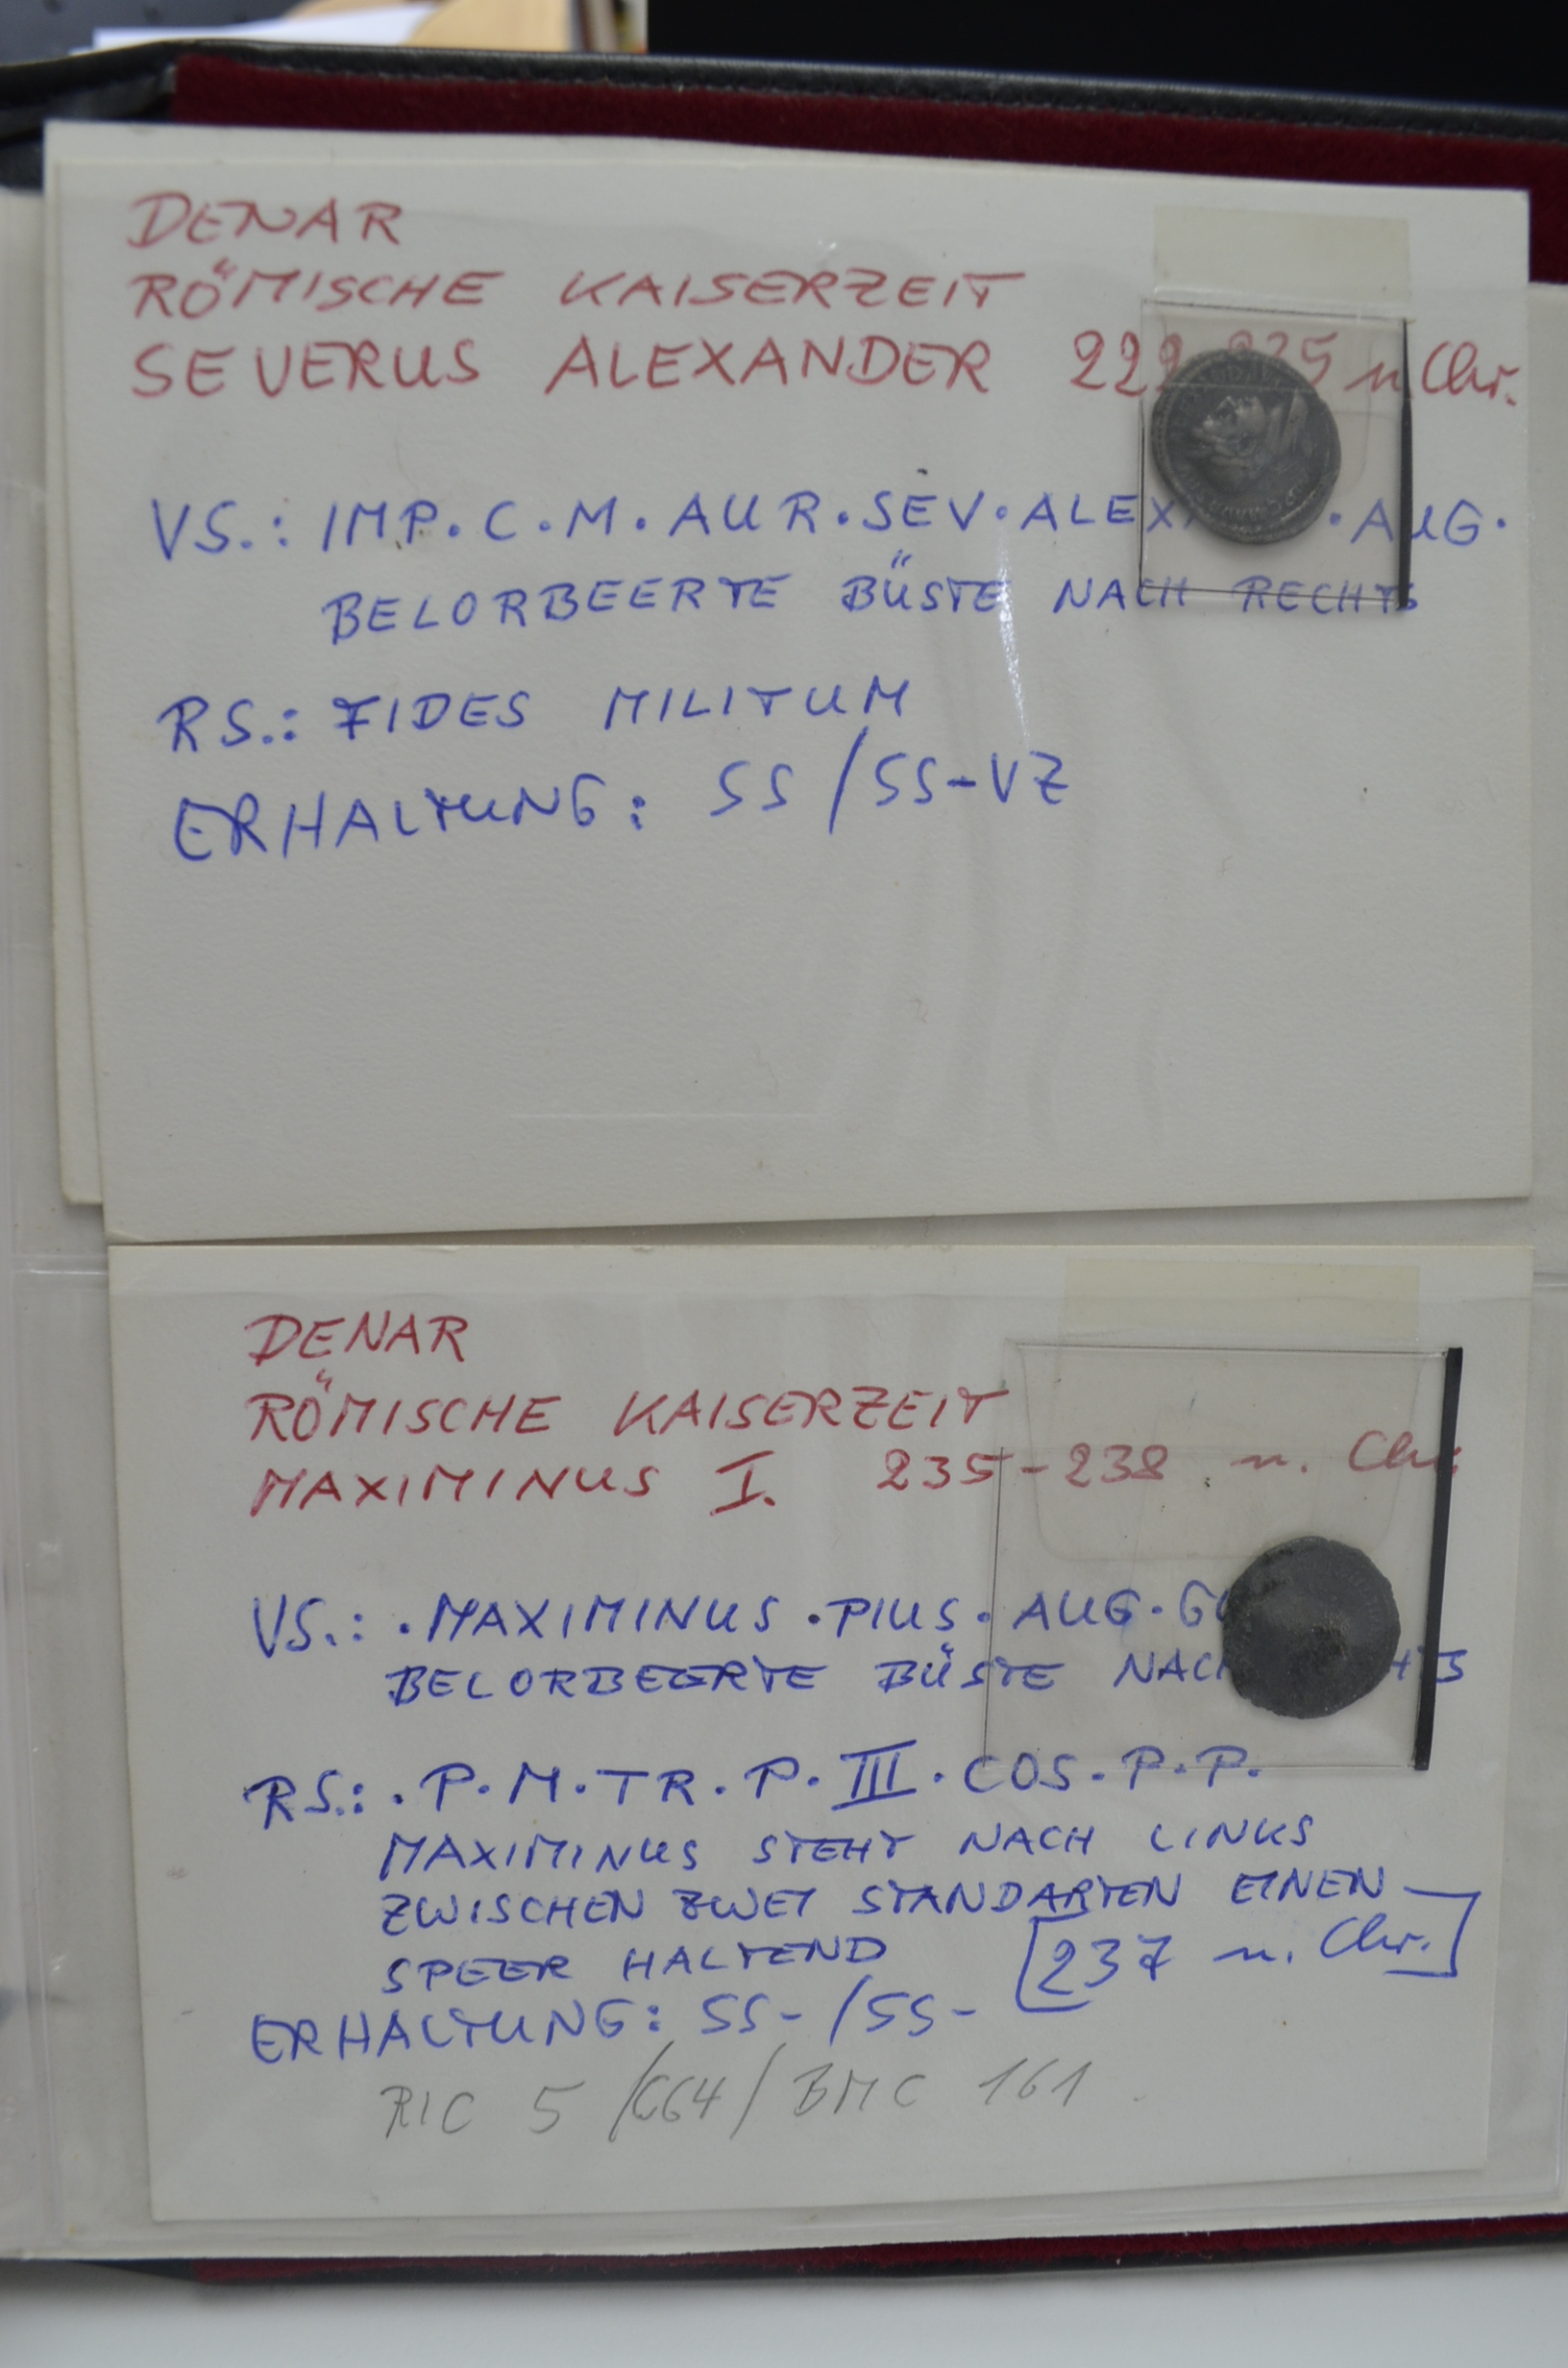 DENAR
RÖMISCHE KAISERZEIT
SEVERUS ALEXANDER 222-235 n. Chr.
VS.: IMP. C. M. AUR. SEV. ALEX . AUG.
BELORBEERTE BÜSTE NACH RECHTS
RS.: FIDES MILITUM
ERHALTUNG: SS / SS-VZ
DENAR
RÖMISCHE KAISERZEIT
MAXIMINUS I. 235-238 n. Chr.
VS.: . MAXIMINUS . PIUS . AUG .
BELORBEERTE BÜSTE
RS.: . P. M. TR. P. III. COS. P. P.
MAXIMINUS STEHT NACH LINKS
ZWISCHEN ZWEI STANDARTEN EINEN
SPEER HALTEND [237 n. Chr.]
ERHALTUNG: SS- / SS-
RIC 5 / C64 / BMC 161